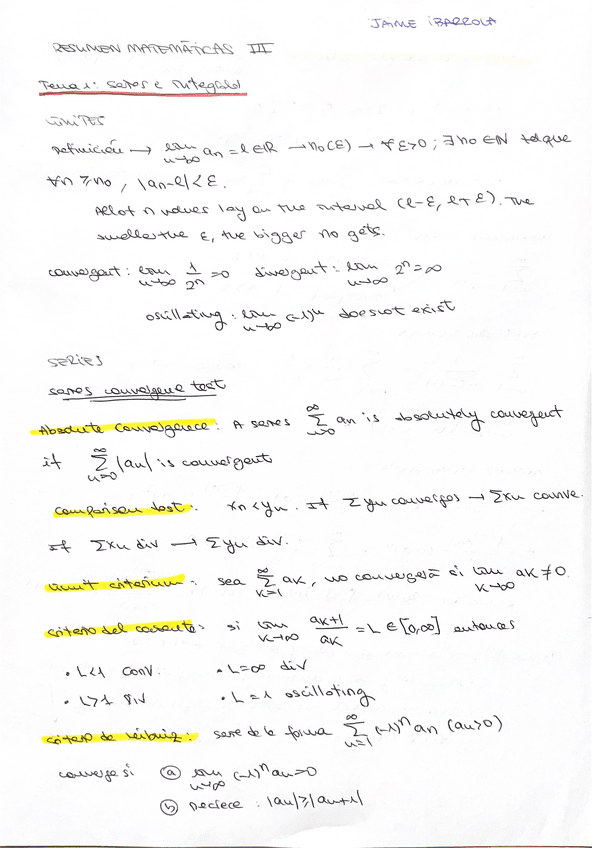 JAIME IBARROLA
RESUMEN MATEMÁTICAS III
Tema 1: series e integrales
LÍMITES
Definición → lim n→∞ an = l ∈ ℝ → n0(ε) → ∀ε>0; ∃ n0 ∈ ℕ tal que
∀n ≥ n0, |an-l| < ε.
A lot n values lay on the interval (l-ε, l+ε). The
smaller the ε, the bigger n0 gets.
convergent: lim n→∞ 1/2^n = 0 divergent: lim n→∞ 2^n = ∞
oscillating: lim n→∞ (-1)^n does not exist
SERIES
series convergence test
Absolute Convergence: A series ∑ n=0 ∞ an is absolutely convergent
if ∑ n=0 ∞ |an| is convergent
Comparison test: xn < yn. If ∑yn converges → ∑xn conve.
If ∑xn div → ∑yn div.
Limit criterium: sea ∑ k=1 ∞ ak, no convergerá si lim k→∞ ak ≠ 0
criterio del cociente: si lim k→∞ ak+1/ak = L ∈ [0,∞] entonces
• L<1 conv. • L=∞ div
• L>1 div • L=1 oscillating
criterio de Leibniz: serie de la forma ∑ n=1 ∞ (-1)^n an (an>0)
converge si ⓐ lim n→∞ (-1)^n an = 0
ⓑ Decrece: |an| ≥ |an+1|